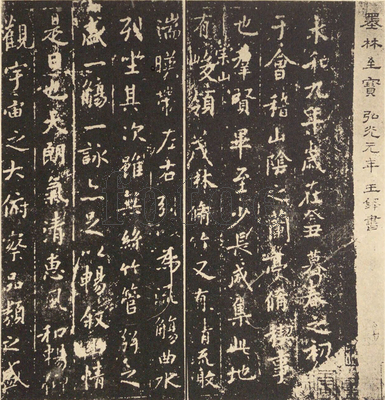 墨林至寶 弘光元年 王鐸書
永和九年歲在癸丑暮春之初
于會稽山陰之蘭亭脩禊事
也羣賢畢至少長咸集此地
有崇山峻領茂林脩竹又有清流激
湍暎帶左右引以為流觴曲水
列坐其次雖無絲竹管弦之
盛一觴一詠亦足以暢叙幽情
是日也天朗氣清惠風和暢仰
觀宇宙之大俯察品類之盛